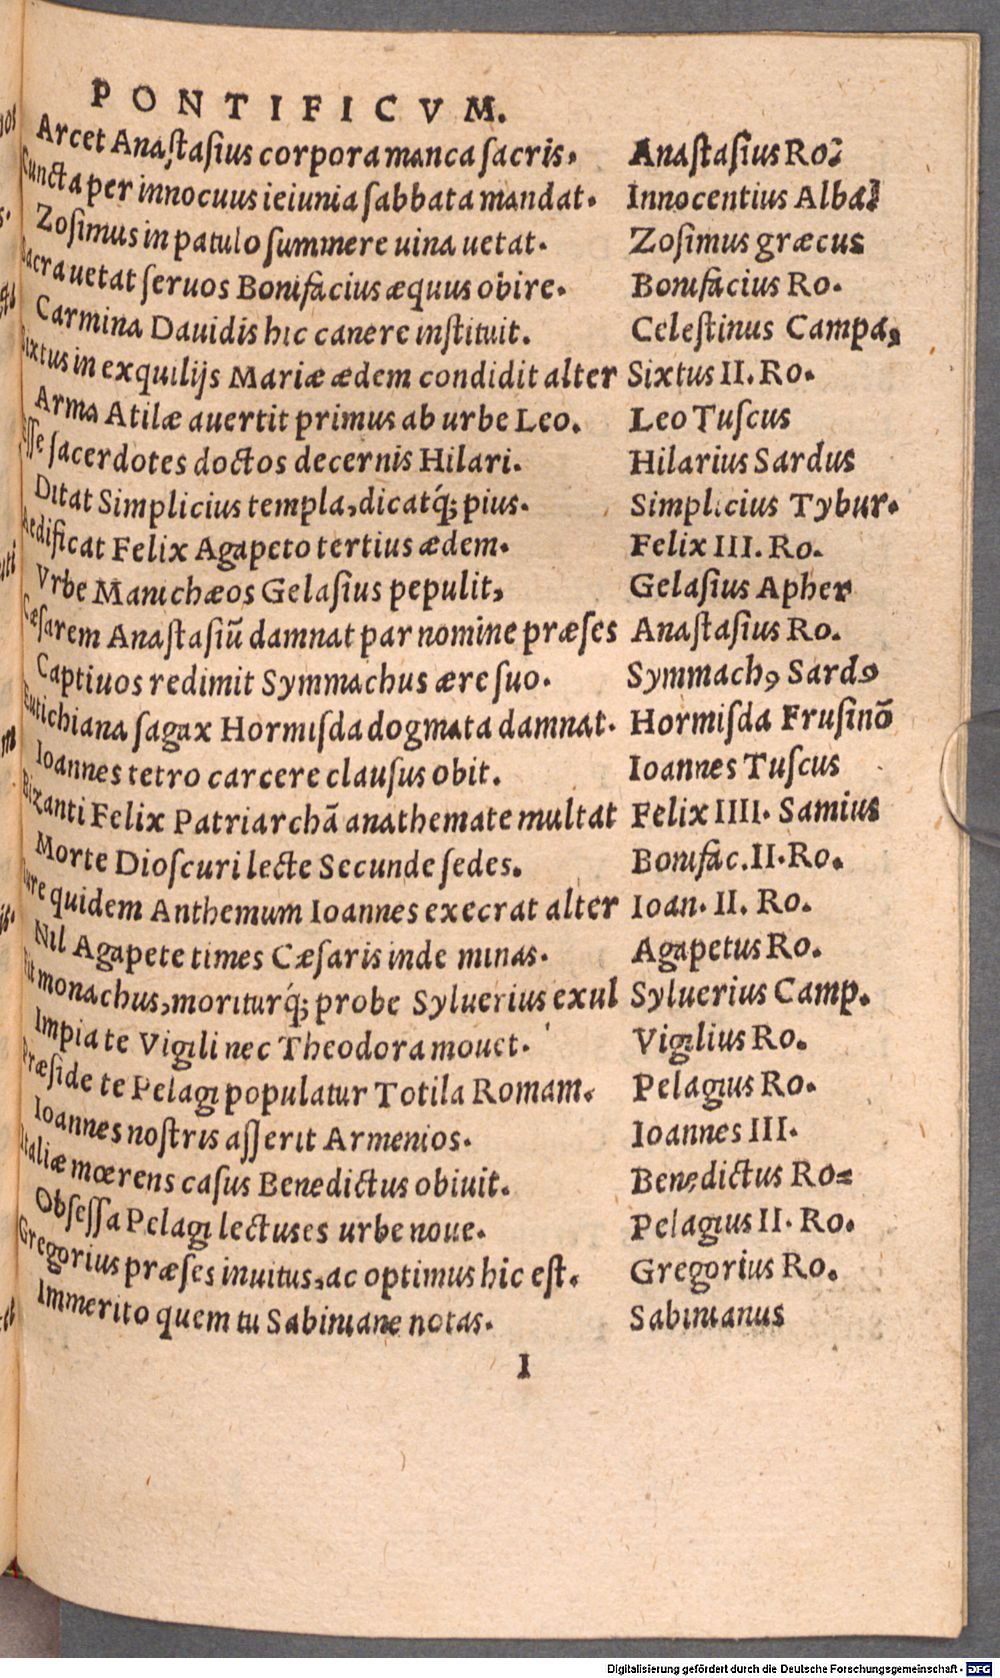 PONTIFICVM.
Arcet Anaſtaſius corpora manca ſacris. Anaſtaſius Ro.
Cuncta per innocuus ieiunia ſabbata mandat. Innocentius Alba.
Zoſimus in patulo ſummere uina uetat. Zoſimus græcus
Sacra uetat ſeruos Bonifacius æquus obire. Bonifacius Ro.
Carmina Dauidis hic canere inſtituit. Celeſtinus Campa,
Sixtus in exquilijs Mariæ ædem condidit alter Sixtus II. Ro.
Arma Atilæ auertit primus ab urbe Leo. Leo Tuſcus
Eſſe ſacerdotes doctos decernis Hilari. Hilarius Sardus
Ditat Simplicius templa, dicatq́; pius. Simplicius Tybur.
Aedificat Felix Agapeto tertius ædem. Felix III. Ro.
Vrbe Manichæos Gelaſius pepulit, Gelaſius Apher
Cæſarem Anaſtaſiũ damnat par nomine præſes Anaſtaſius Ro.
Captiuos redimit Symmachus ære ſuo. Symmachꝰ Sardꝰ
Eutichiana ſagax Hormiſda dogmata damnat. Hormiſda Fruſinõ
Ioannes tetro carcere clauſus obit. Ioannes Tuſcus
Bizanti Felix Patriarchã anathemate multat Felix IIII. Samius
Morte Dioſcuri lecte Secunde ſedes. Bonifac. II. Ro.
Iure quidem Anthemum Ioannes execrat alter Ioan. II. Ro.
Nil Agapete times Cæſaris inde minas. Agapetus Ro.
Fit monachus, moriturq́; probe Syluerius exul Syluerius Camp.
Impia te Vigili nec Theodora mouet. Vigilius Ro.
Præſide te Pelagi populatur Totila Romam. Pelagius Ro.
Ioannes noſtris aſſerit Armenios. Ioannes III.
Italiæ mœrens caſus Benedictus obiuit. Benedictus Ro=
Obſeſſa Pelagi lectus es urbe noue. Pelagius II. Ro.
Gregorius præſes inuitus, ac optimus hic eſt. Gregorius Ro.
Immerito quem tu Sabiniane notas. Sabinianus
I
Digitalisierung gefördert durch die Deutsche Forschungsgemeinschaft - DFG